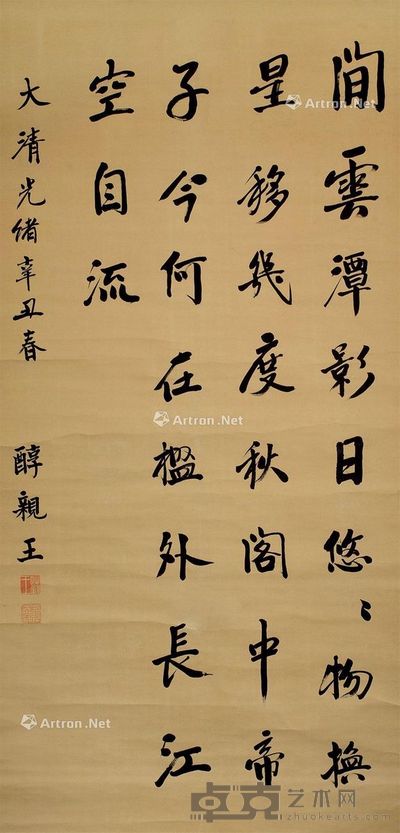 間雲潭影日悠〻物換
星移幾度秋閣中帝
子今何在檻外長江
空自流
大清光緒辛丑春 醇親王
Artron.Net
Artron.Net
Artron.Net
Artron.Net
Artron.Net
卓克艺术网
zhuokearts.com